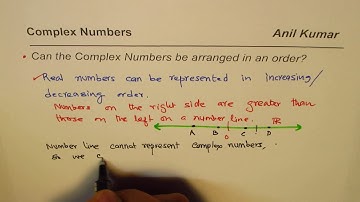 Complex Numbers
Anil Kumar
• Can the Complex Numbers be arranged in an order?
✓ Real numbers can be represented in Increasing/
decreasing order.
Numbers on the right side are greater than
those on the left on a number line. ℝ
A B 0 C D
Number line cannot represent Complex numbers,
So we c